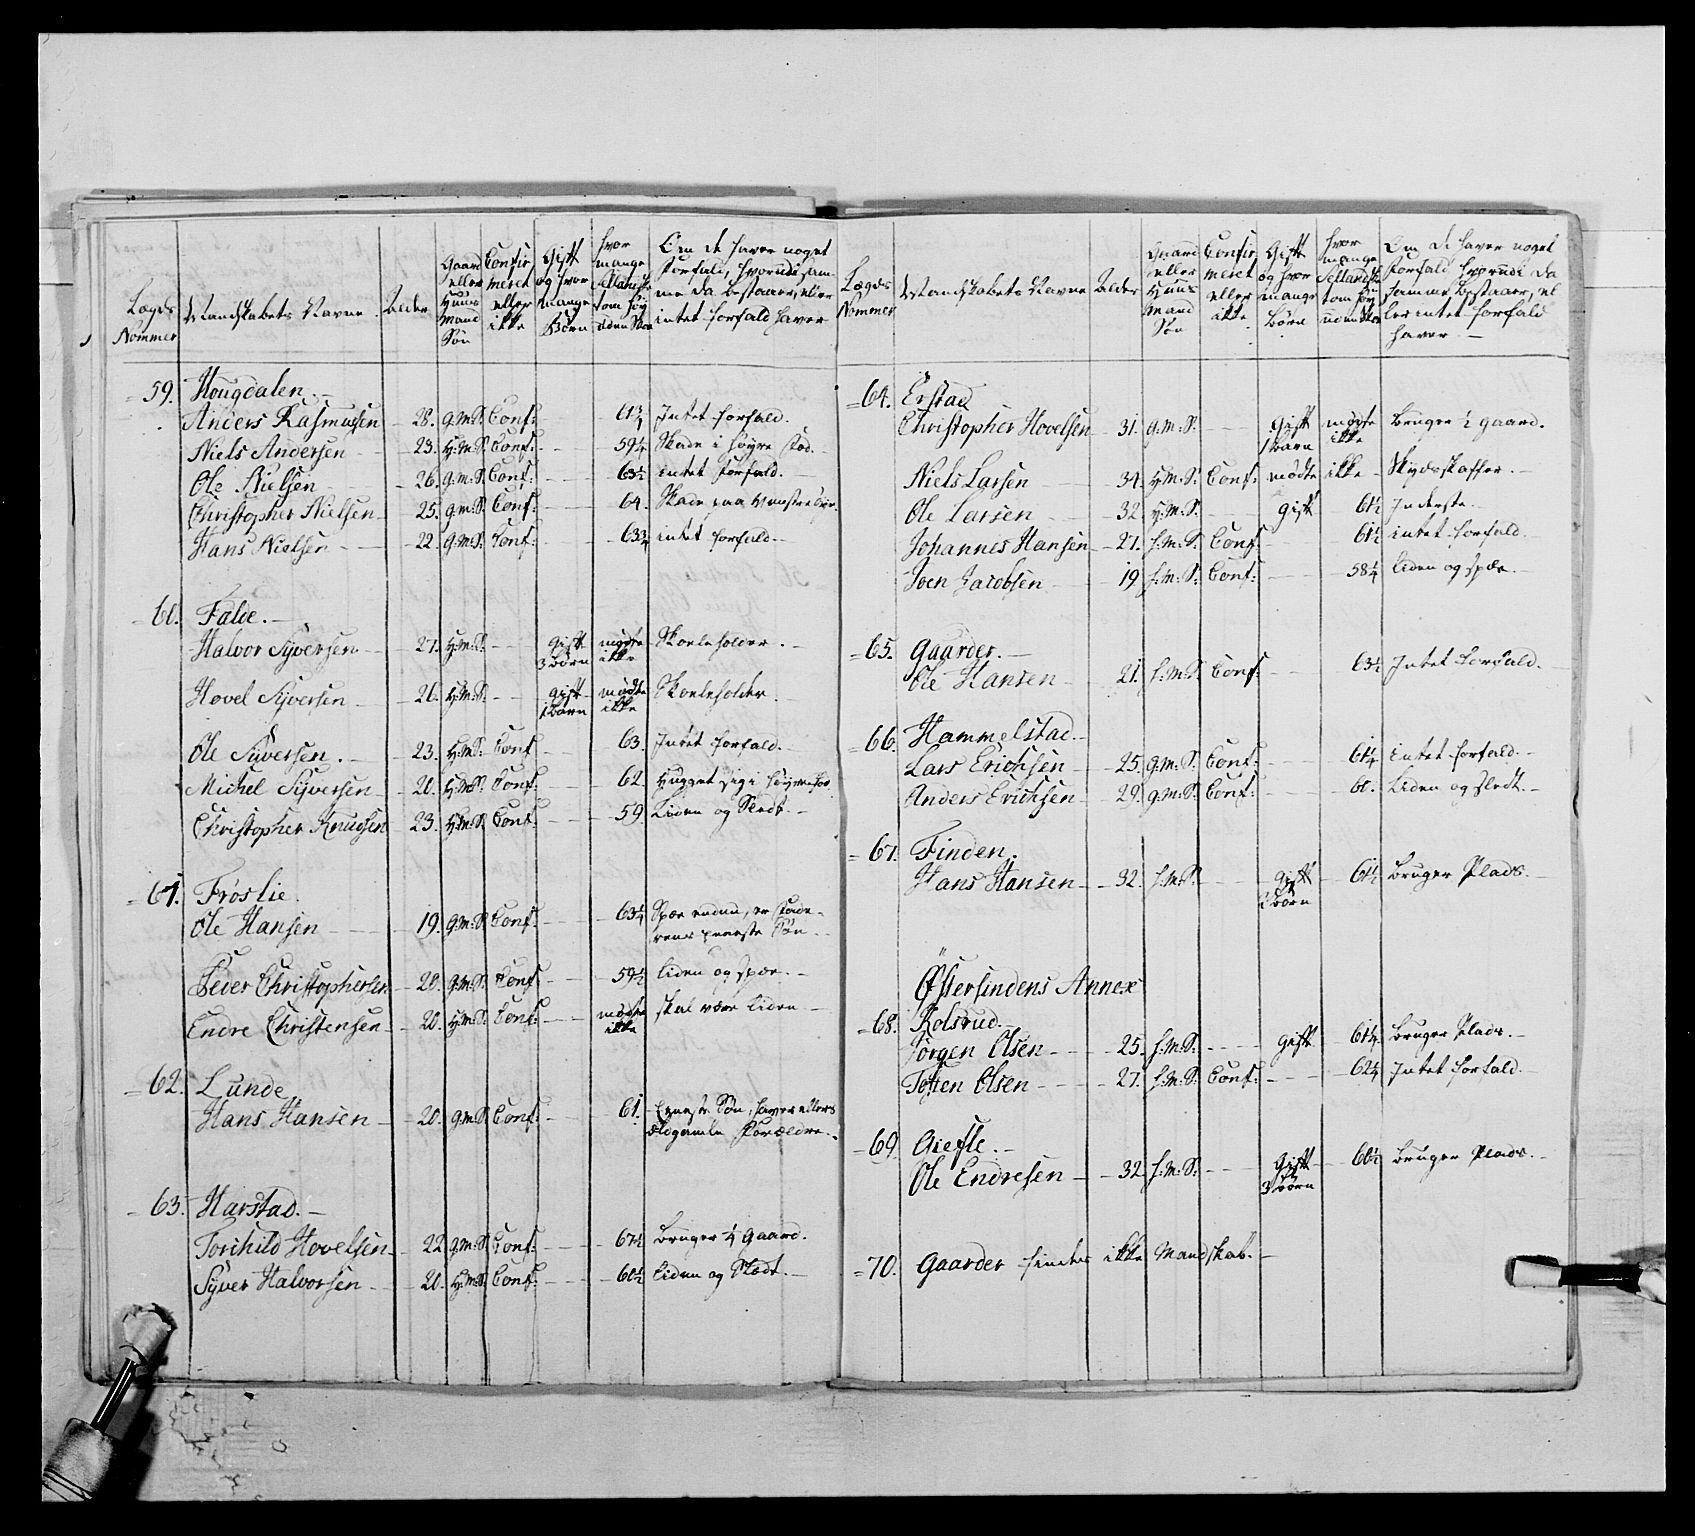 Lægds Nommer
Mandskabets Navne
Alder
Gaard eller Huus Mand Søn
Confir meret eller ikke
Gift og hvor mange Børn
hvor mange Sællandske tom høy uden Skoe
Om de haver noget forfald, hvorudi sam- me da bestaaer, eller intet forfald haver
59. Hougdalen.
Anders Rasmussen 28. G.M.S. Conf: 61¾ Intet forfald.
Niels Andersen 23. H.M.S. Conf: 59¼ Skade i høyre fod.
Ole Nielsen 26. G.M.S. Conf: 63½ intet forfald.
Christopher Nielsen 25. G.M.S. Conf: 64. Skade paa venstre
Hans Nielsen 22. G.M.S. Conf: 63¾ intet forfald.
60. Falde.
Halvor Syversen 27. H.M.S. Gift 3 Børn mødte ikke Skoeleholder.
Hovel Syversen 26. H.M.S. Gift 1 Barn mødte ikke Skoeleholder.
Ole Syversen. 23. H.M.S. Conf 63. Intet forfald.
Michel Syversen 20. H.M.S. Conf: 62. Hugget sig i høyre
Christopher Knudsen 23. H.M.S. Conf: 59. Liden og Slect.
61. Frøslie.
Ole Hansen 19. G.M.S. Conf: 63¼ Spæ endnu, er Fade-
rens eneste Søn.
Sever Christophersen 20. G.M.S. Conf: 59½ liden og spæ.
Endre Christensen 20. H.M.S. Conf: mødte ikke skal være liden
62. Lunde
Hans Hansen 20. G.M.S. Conf: 61. Eeneste Søn, haver ellers
ældgamle Forældre.
63. Harstad.
Torchild Hovelsen 22. G.M.S. Conf: 67½ Bruger ¼ Gaard.
Syver Halvorsen 20. H.M.S. Conf: 60½ liden og Slect.
Lægds Nommer
Mandskabets Navne
Alder
Gaard eller Huus Mand Søn
Confir meret eller ikke
Gift og hvor mange Børn
hvor mange Sællandske tom høy uden Skoe
Om de haver noget forfald hvorudi da samme bestaaer, el ler intet forfald haver
64. Erstad
Christopher Hovelsen 31. G.M.S. Gift 1 Barn mødte ikke Bruger ½ gaard.
Niels Larsen 34. H.M.S. Conf: mødte ikke Skydsskaffer.
Ole Larsen 32. H.M.S. gift 61½ Inderste.
Johannes Hansen 21. H.M.S. Conf 61½ intet forfald.
Joen Jacobsen 19. H.M.S. Conf: 58¼ liden og spæ.
65. Gaarder.
Ole Hansen 21. H.M.S. Conf: 63½ Intet forfald.
66. Hammelstad.
Lars Erichsen 25. G.M.S. Conf: 61¼ intet forfald.
Anders Erichsen 29. G.M.S. Conf: 60. Liden og slect.
67. Finden.
Hans Hansen 32. H.M.S. Gift 2 Børn 61½ Bruger Plads.
Østersindens Annex
68. Kolsrud.
Jørgen Olsen 25. H.M.S. Gift 61¼ Bruger Plads.
Tosten Olsen 27. H.M.S. Conf: 62¼ Intet forfald.
69. Giefle.
Ole Endresen 32. H.M.S. Gift 3 Børn 60½ Bruger Plads.
70. Gaarder findes ikke Mandskab.